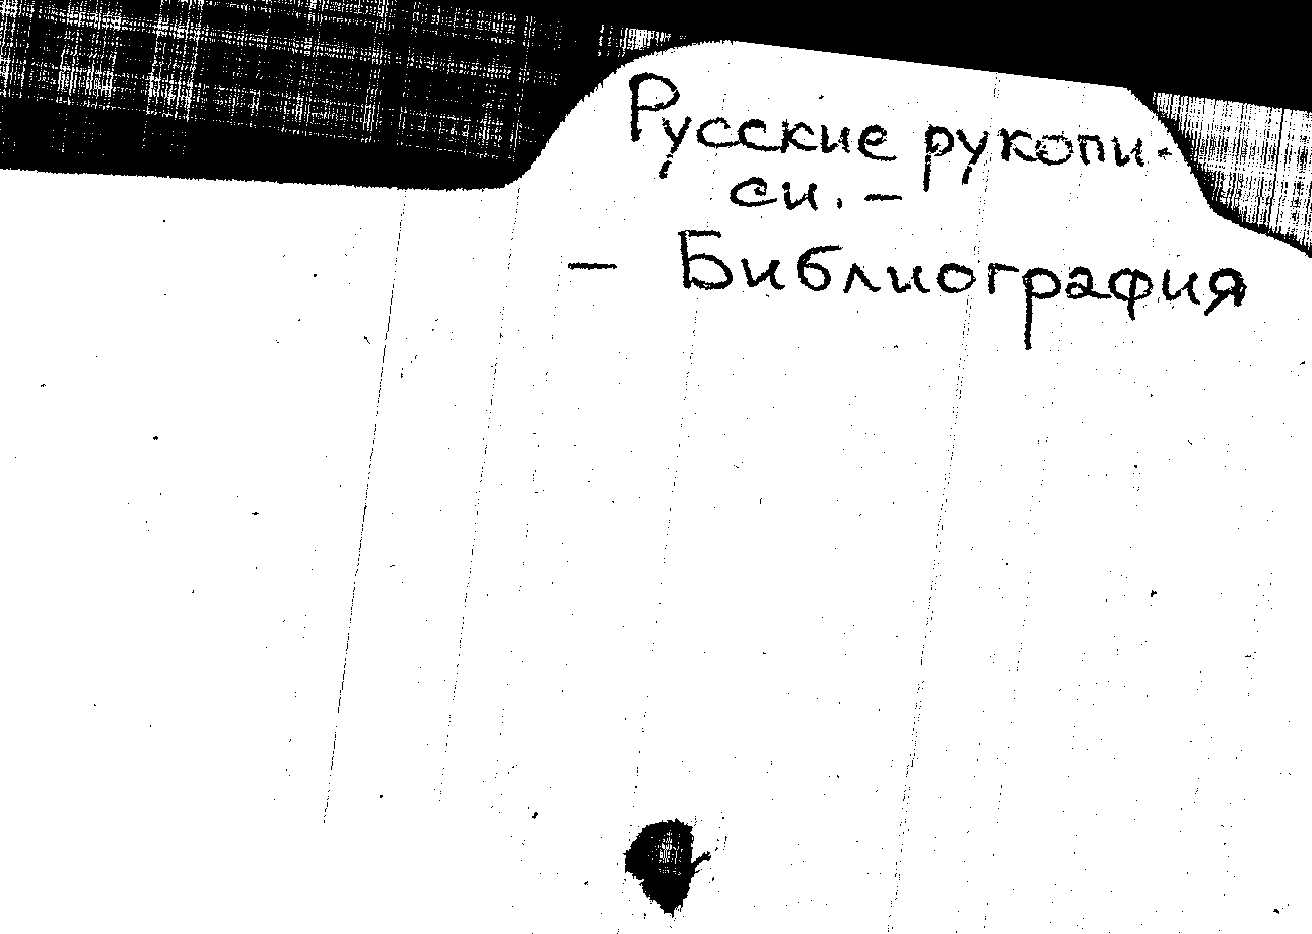 Русские рукопи-
си. –
– Библиография